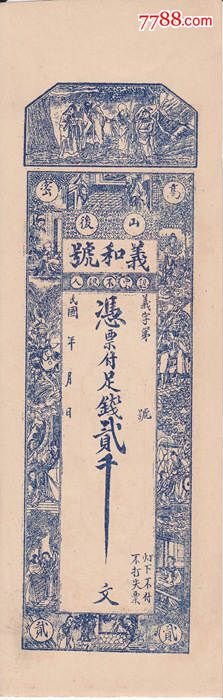 7788.com
高密
山後
義和號
認票不認人
義字第 號
憑票付足錢貳千文
民國 年 月 日
灯下不付
不打失票
貳
貳